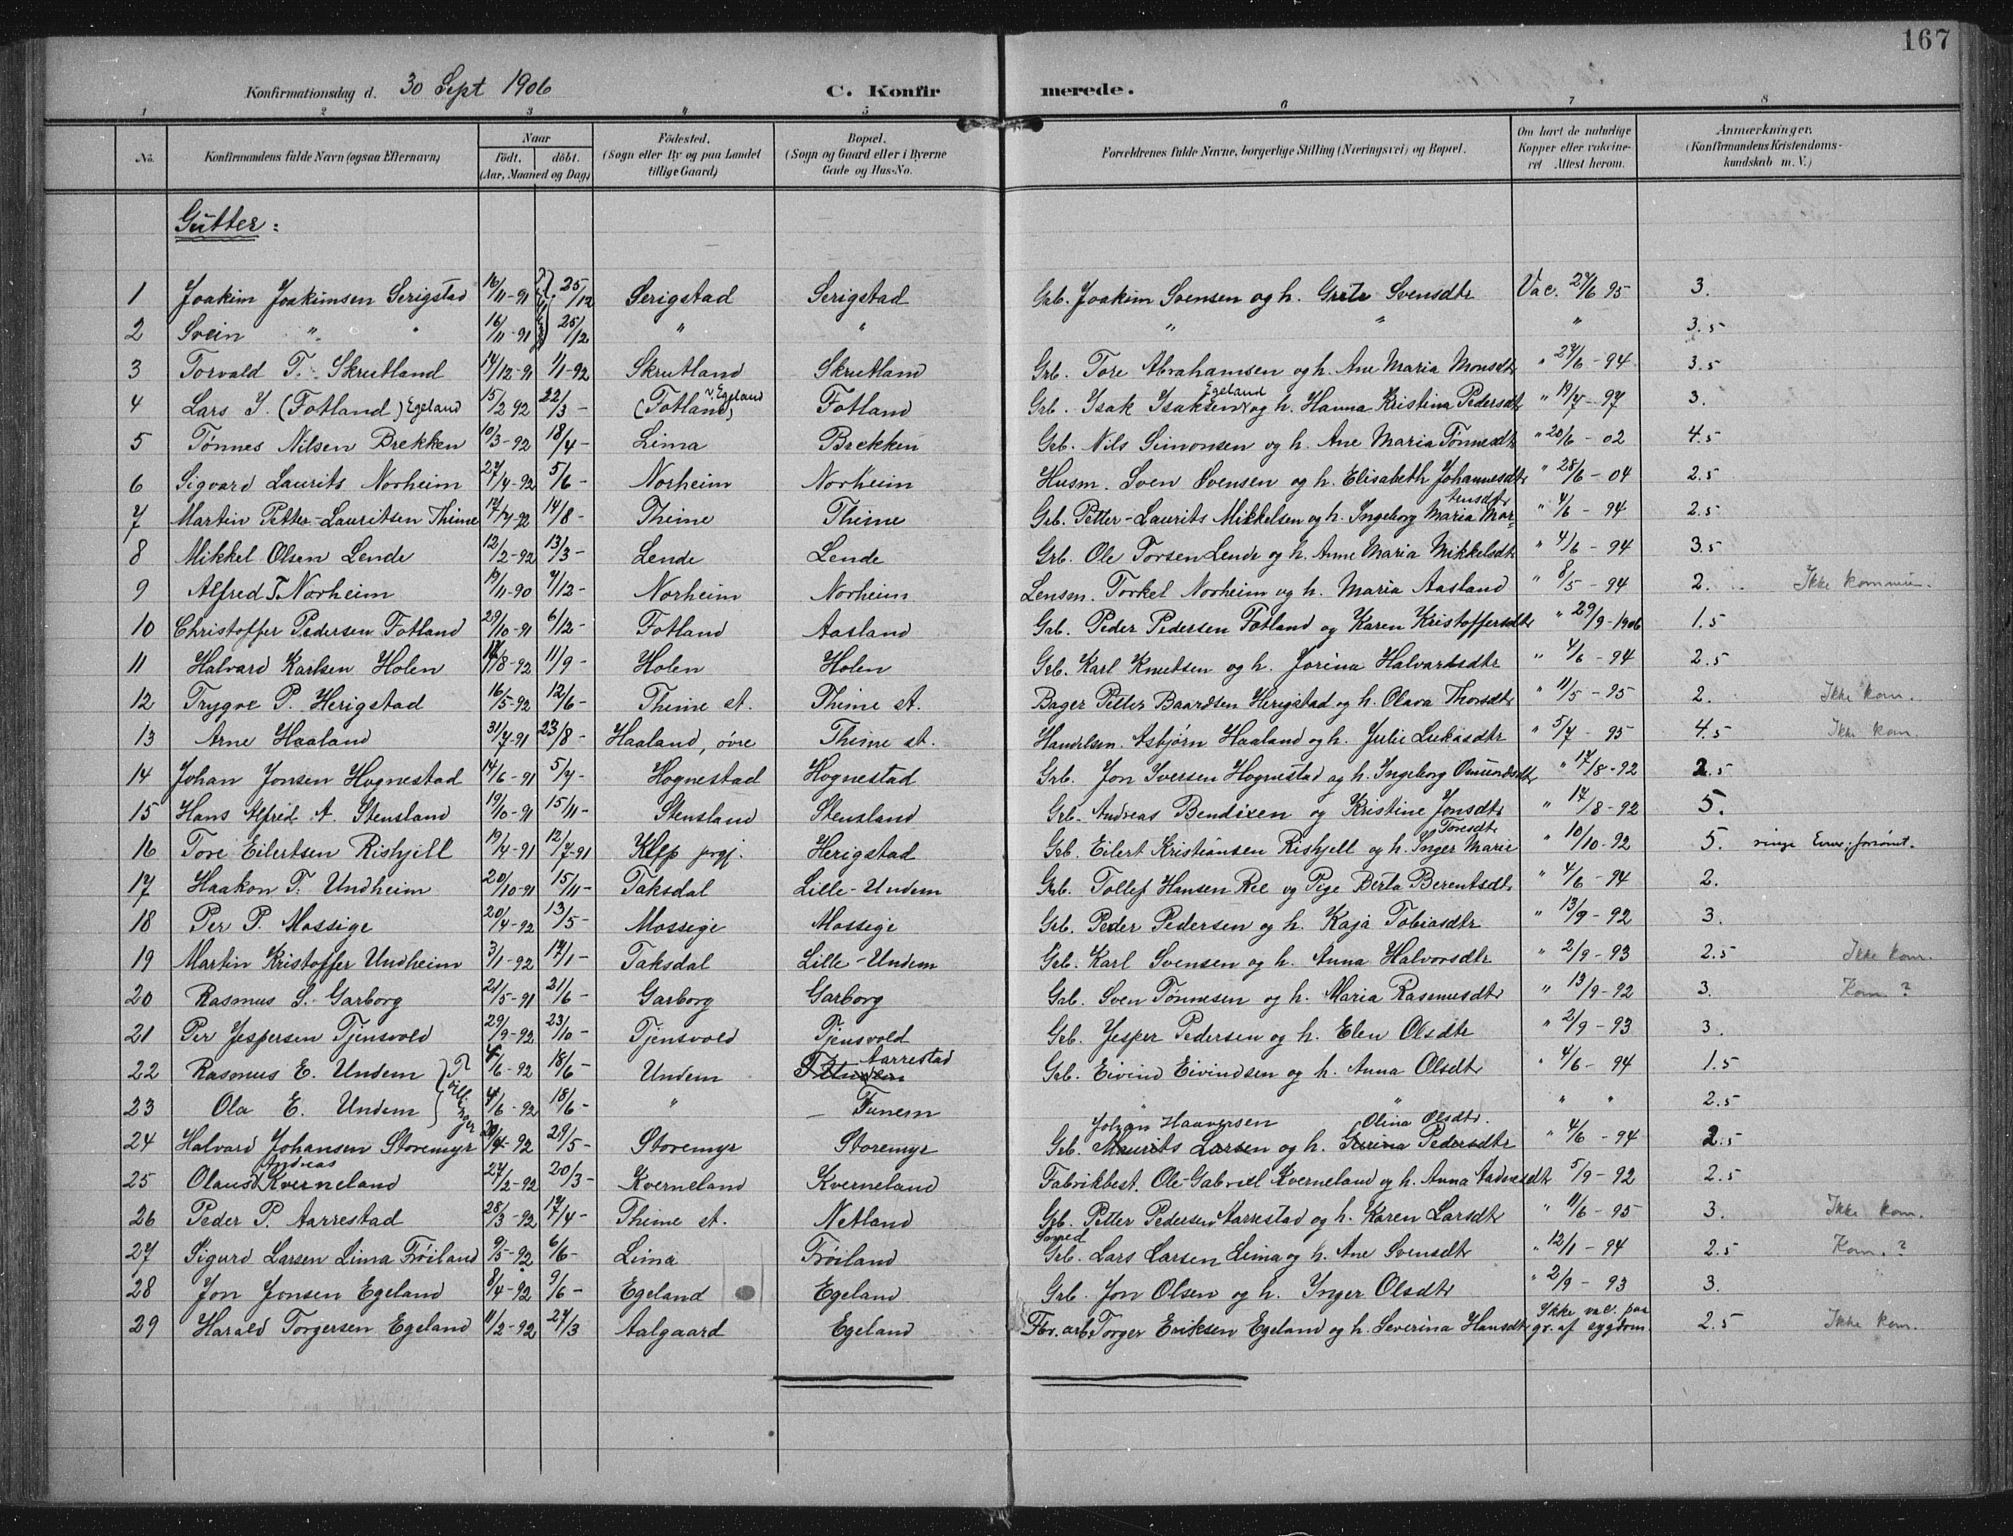 167
Konfirmationsdag d. 30 Sept 1906 C. Konfirmerede.
1 2 3 4 5 6 7 8
No. Konfirmandens fulde Navn (ogsaa Efternavn) Naar födt, döbt. (Aar, Maaned og Dag) Födested. (Sogn eller By og paa Landet tillige Gaard) Bopæl. (Sogn og Gaard eller i Byerne Gade og Hus-No. Forældrenes fulde Navne, borgerlige Stilling (Næringsvei) og Bopæl. Om havt de naturlige Kopper eller vakcineret Attest herom. Anmærkninger. (Konfirmandens Kristendomskundskab m. V.)
Gutter:
1 Joakim Joakimsen Serigstad 16/11-91 25/12 Serigstad Serigstad Grb. Joakim Svensen og h. Grete Svensdtr Vac. 27/6 95 3.
2 Svein " " 16/11-91 25/12 " " " " " 3.5
3 Torvald T. Skrutland 14/12-91 1/1-92 Skrutland Skrutland Grb. Tore Abrahamsen og h. Ane Maria Monsdtr " 27/6-94 3.5
4 Lars I. (Fotland) Egeland 15/2 92 22/3 - (Fotland) Egeland Fotland Grb. Isak Isaksen Egeland og h. Hanna Kristina Pedersdtr " 19/7-97 3.
5 Tønnes Nilsen Brekken 10/3-92 18/4- Lima Brekken Grb. Nils Simonsen og h. Ane Maria Tønnesdtr " 20/6-02 4.5
6 Sigvard Laurits Norheim 27/4-92 5/6- Norheim Norheim Husm. Sven Svensen og h. Elisabeth Johannesdtr " 28/6-04 2.5
7 Martin Petter-Lauritsen Thime 17/7-92 14/8- Thime Thime Grb. Petter-Laurits Mikkelsen og h. Ingeborg Maria Mortensdtr " 4/6-94 2.5
8 Mikkel Olsen Lende 12/2-92 13/3- Lende Lende Grb. Ole Torsen Lende og h. Anne Maria Mikkelsdtr " 4/6-94 3.5
9 Alfred T Norheim 19/11-90 7/12- Norheim Norheim Lensm. Torkel Norheim og h. Maria Aasland " 8/5-94 2. Ikke kommun.
10 Christoffer Pedersen Fotland 29/10-91 6/12- Fotland Aasland Grb. Peder Pedersen Fotland og Karen Kristoffersdtr " 29/9-1906 1.5
11 Halvard Karlsen Holen /8-92 11/9- Holen Holen Grb. Karl Knutsen og h. Jorina Halvardsdtr " 4/6-94 2.5
12 Trygve P. Herigstad 16/5-92 12/6- Thime st. Thime st. Bager Petter Baardsen Herigstad og h. Olava Thorsdtr " 11/5-95 2. Ikke kom.
13 Arne Haaland 31/7-91 23/8- Haaland, øvre Thime st. Handelsm. Asbjørn Haaland og h. Julie Lukasdtr " 5/7-95 4.5 Ikke kom.
14 Johan Jonsen Hognestad 14/6-91 5/7- Hognestad Hognestad Grb. Jon Iversen Hognestad og h. Ingeborg Osmundsdtr " 17/8-92 2.5
15 Hans Alfred A. Stensland 19/10-91 15/11- Stensland Stensland Grb. Andreas Bendixen og Kristine Jonsdtr " 17/8-92 5.
16 Tore Eilertsen Rishjell 19/4-91 12/7-91 Klep prgj. Herigstad Grb. Eilert Kristiansen Rishjell og h. Inger Marie Toresdtr " 10/10-92 5. ringe
17 Haakon T. Undheim 20/10-91 15/11- Taksdal Lille-Undem Grb. Tollef Hansen Ree og Pige Berta Berentsdtr " 4/6-94 2.
18 Per P. Mossige 20/4-92 13/5- Mossige Mossige Grb. Peder Pedersen og h. Kaja Tobiasdtr " 13/9-92 3.
19 Martin Kristoffer Undheim 3/1-92 17/1- Taksdal Lille-Undem Grb. Karl Svensen og h. Anna Halvorsdtr " 2/9-93 2.5 Ikke kom.
20 Rasmus S. Garborg 21/5-91 21/6- Garborg Garborg Grb. Sven Tønnesen og h. Maria Rasmusdtr " 13/9-92 3. Kom ?
21 Per Jespersen Tjensvold 29/9-92 23/10- Tjensvold Tjensvold Grb. Jesper Pedersen og h. Elen Olsdtr " 2/9-93 3.
22 Rasmus E. Undem } Tvillinger 4/6-92 18/6- Undem Aarrestad Grb. Eivind Eivindsen og h. Anna Olsdtr " 4/6-94 1.5
23 Ola E. Undem 4/6-92 18/6- " Tunem " " " " 2.5
24 Halvard Johansen Storemyr 20/4-92 29/5- Storemyr Storemyr Grb. Maurits Larsen og h. Serina Pedersdtr Johan Haaversen Olina Olsdtr. " 4/6-94 2.5
25 Olaus Andreas Kverneland 27/2-92 20/3- Kverneland Kverneland Fabrikbest. Ole-Gabriel Kverneland og h. Anna Aadnesdtr " 5/9-92 2.5
26 Peder P. Aarrestad 28/3-92 17/4- Thime st. Netland Grb. Petter Pedersen Aarrestad og h. Karen Larsdtr " 11/6-95 3. Ikke kom.
27 Sigurd Larsen Lima Frøiland 9/5-92 6/6- Lima Frøiland Grb. Lars Larsen Lima og h. Ane Svensdtr " 12/1-94 2.5 Kom. ?
28 Jon Jonsen Egeland 8/4-92 9/6- Egeland Egeland Grb. Jon Olsen og h. Inger Olsdtr " 2/9-93 3.
29 Harald Torgersen Egeland 11/2-92 27/3 Aalgaard Egeland Fbr. arb. Torger Eriksen Egeland og h. Severina Hansdtr Ikke vac. paa gr. af sygdom 2.5 Ikke kom.